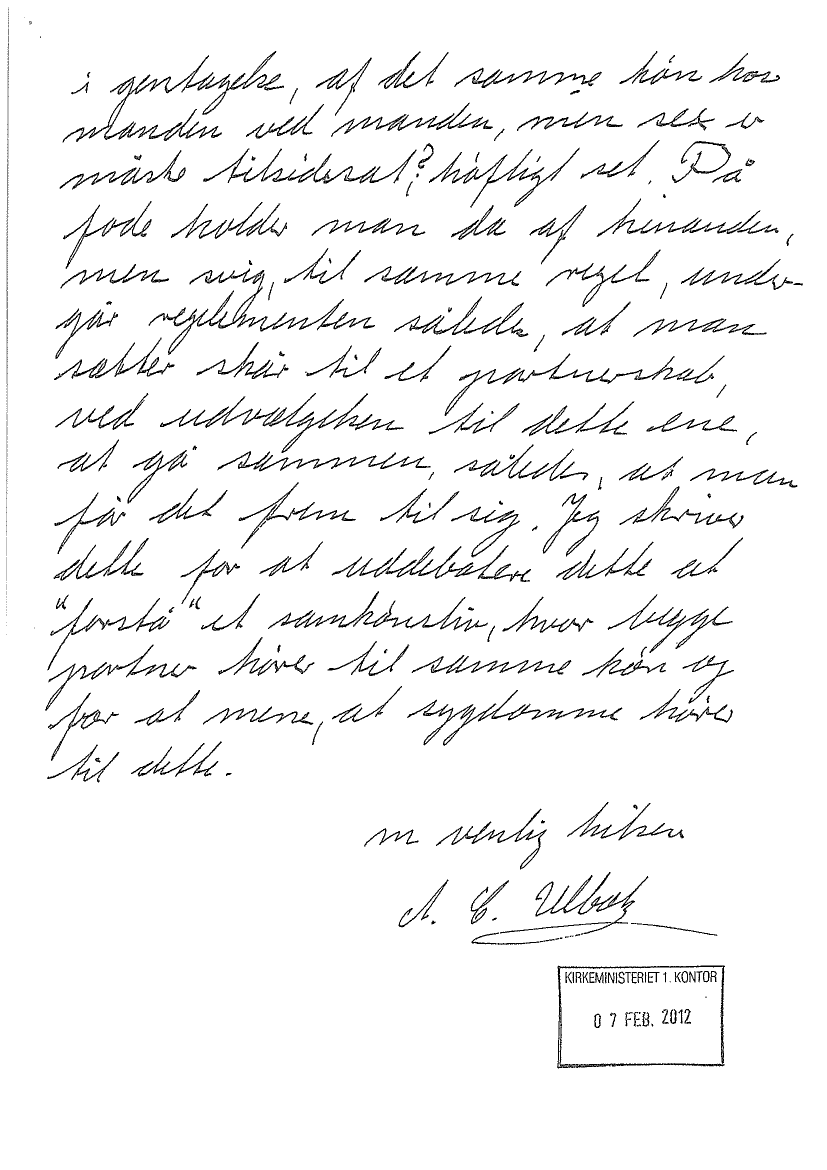 i gentagelse, af det samme køn hos
manden ved manden, men sex er
måske tilsidesat? høfligt set. På
fode holder man da af hinanden,
men svig, til samme regel, under-
går reglementen således, at man
sætter skår til et partnerskab,
ved udvælgelsen til dette ene,
at gå sammen, således, at man
får det frem til sig. Jeg skriver
dette for at uddebatere dette at
"forstå" et samkønsliv, hvor begge
partner hører til samme køn og
for at mene, at sygdomme hører
til dette.
m venlig hilsen
A. C. Ulbæk
KIRKEMINISTERIET 1. KONTOR
07 FEB. 2012